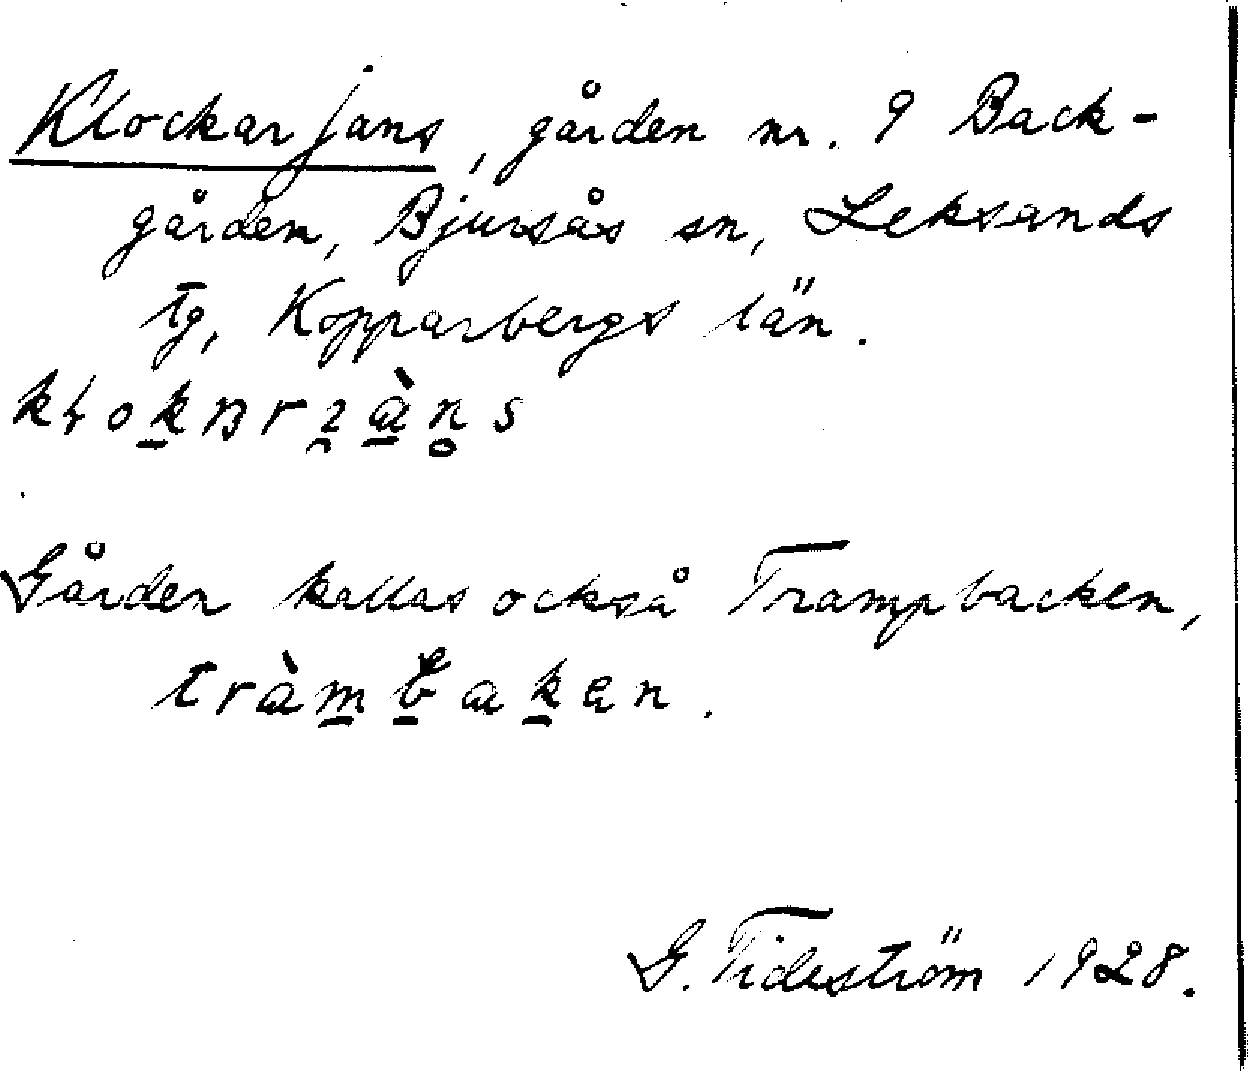 Klockarjans, gården nr. 9 Back-
gården, Bjursås sn, Leksands
tg, Kopparbergs län.
Gården kallas också Trampbacken,
tràmbaken.
G. Tideström 1928.